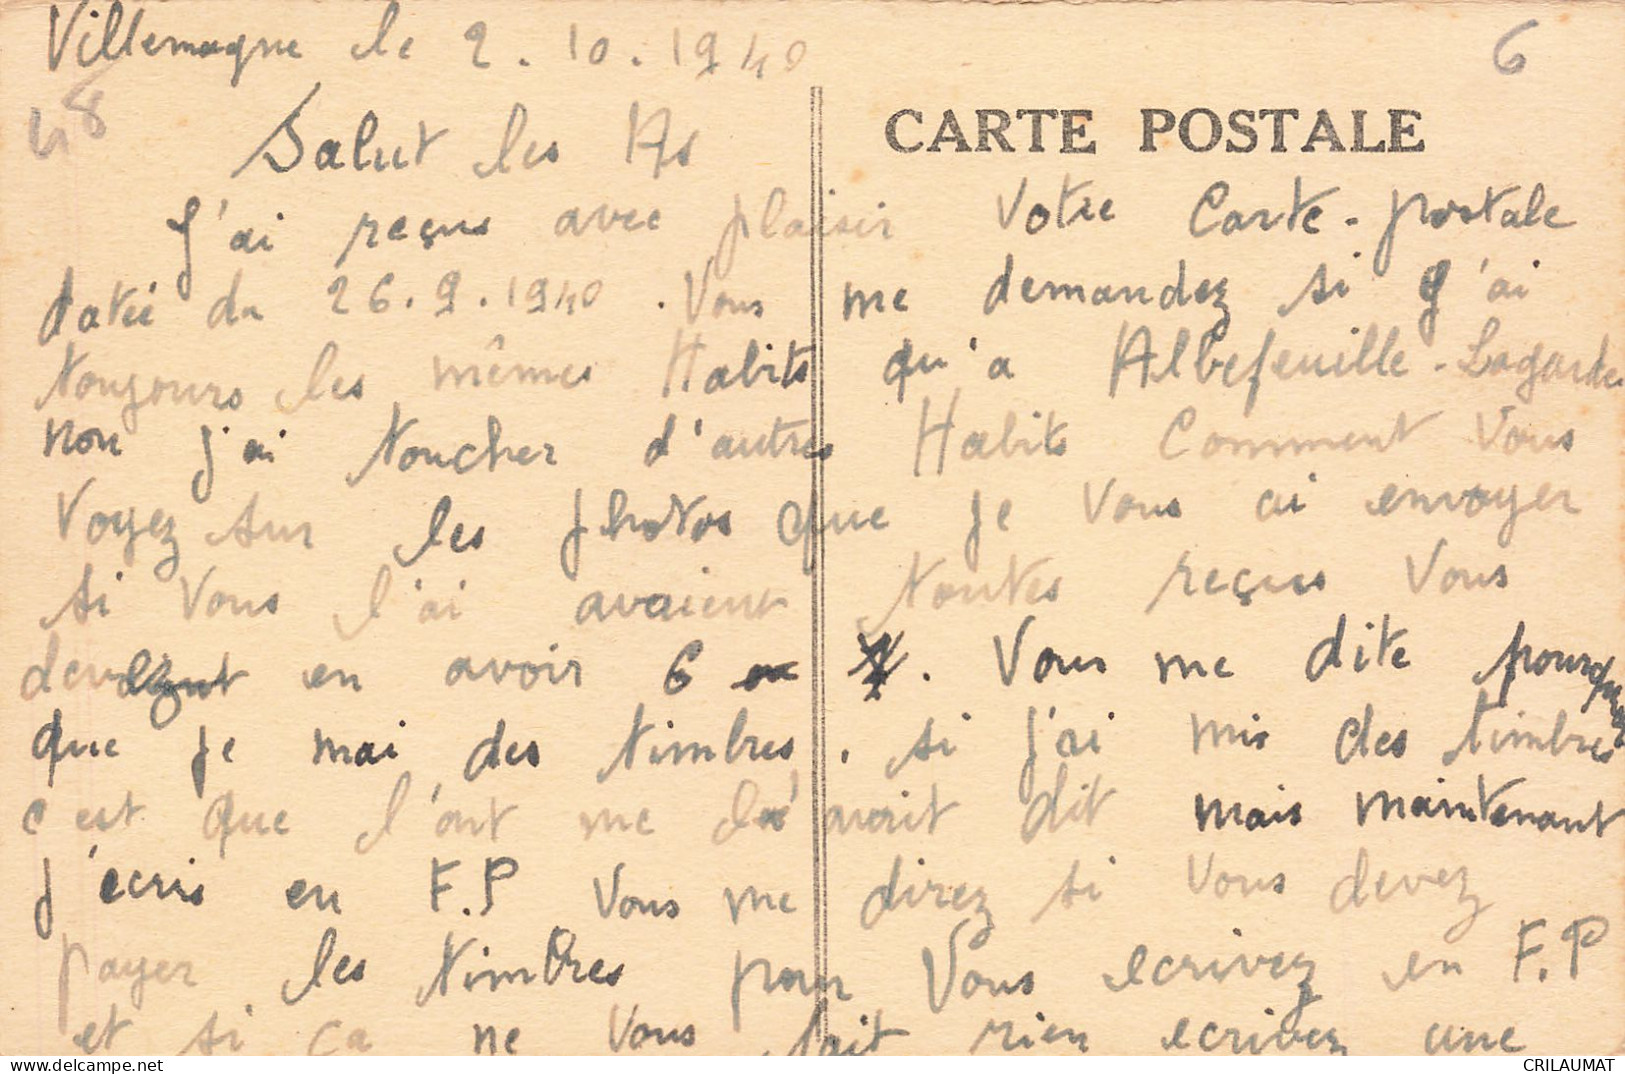 Villemagne le 2.10.1940
6
48
CARTE POSTALE
Salut les As
J'ai reçus avec plaisir Votre Carte-postale
datée du 26.9.1940. Vous me demandez si J'ai
toujours les mêmes Habits qu'a Albefeuille-Lagarde
non j'ai toucher d'autres Habits Comment Vous
Voyez sur les photos que je Vous ai envoyer
si Vous l'ai avaient toutes reçus Vous
devez en avoir 6. Vous me dite pourquoi
que je mai des timbres. si j'ai mis des timbres
c'est que l'ont me l'avait dit mais maintenant
j'écris en F.P Vous me direz si Vous devez
payer les timbres pour Vous ecrivez en F.P
et si ça ne Vous fait rien ecrivez une
CRILAUMAT